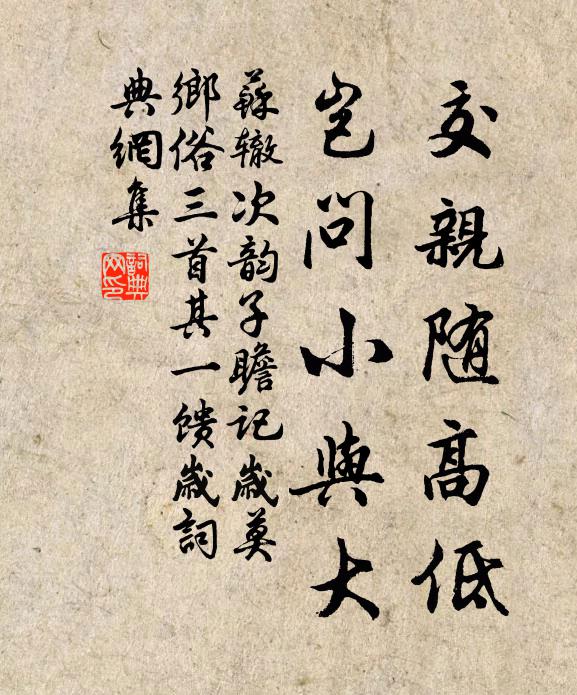 交親隨高低
豈問小與大
蘇辙次韵子瞻記歲莫
鄉俗三首其一饋歲詞
典網集
詞典網印